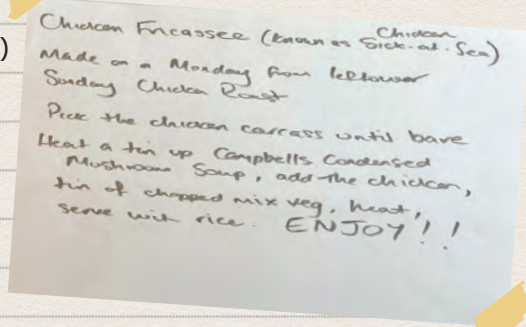 )
Chicken
Chicken Fricassee (known as Sick-at-Sea)
Made on a Monday from leftover
Sunday Chicken Roast
Pick the chicken carcass until bare
Heat a tin up Campbells Condensed
Mushroom Soup, add the chicken,
tin of chopped mix veg, heat,
serve with rice. ENJOY!!